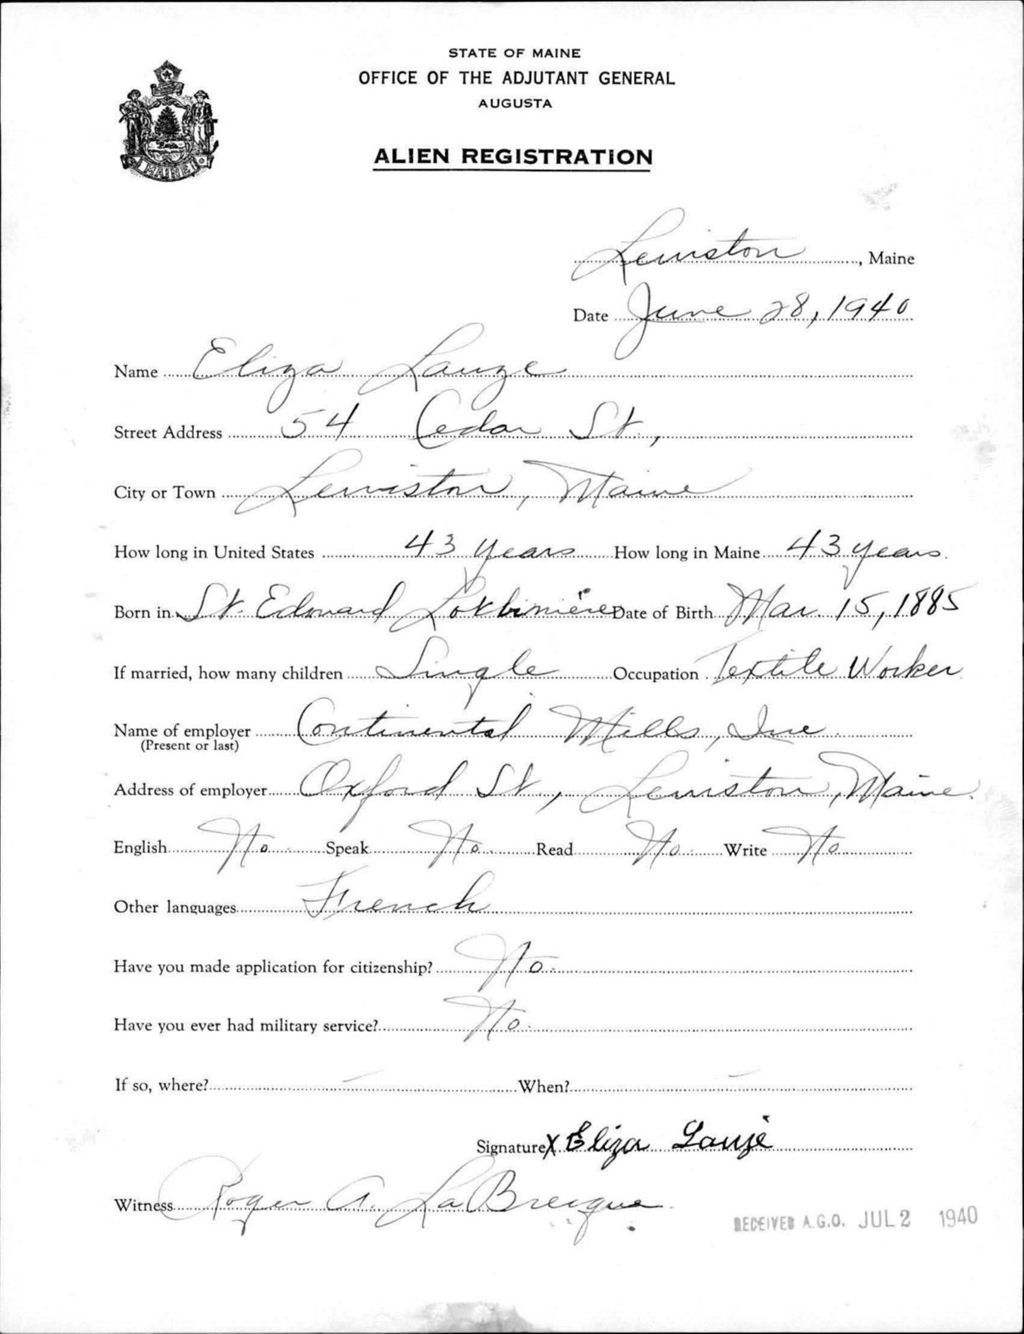 STATE OF MAINE
OFFICE OF THE ADJUTANT GENERAL
AUGUSTA
ALIEN REGISTRATION
MAINE
Lewiston, Maine
Date June 28, 1940
Name Eliza Lauze
Street Address 54 Cedar St.,
City or Town Lewiston, Maine
How long in United States 43 years How long in Maine 43 years
Born in St. Edouard Lotbinière Date of Birth Mar. 15, 1885
If married, how many children Single Occupation Textile Worker
Name of employer Continental Mills, Inc
(Present or last)
Address of employer Oxford St., Lewiston, Maine
English No Speak No Read No Write No
Other languages French
Have you made application for citizenship? No
Have you ever had military service? No
If so, where? – When? –
Signature X Eliza Lauzé
Witness Roger A. LaBrecque
RECEIVED A.G.O. JUL 2 1940